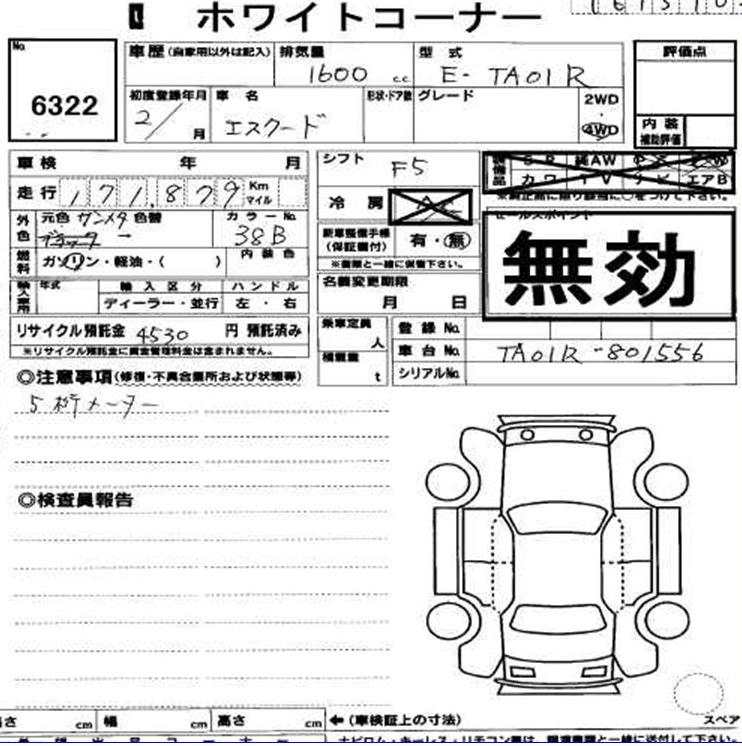 ホワイトコーナー
No.
6322
車歴(自家用以外は記入)
排気量
1600 cc
型式
E-TA01R
評価点
初度登録年月
2/ 月
車名
エスクード
形状・ドア数
グレード
2WD
4WD
内装
補助評価
車検 年 月
シフト
F5
走行 171,879 Km マイル
冷房
外色
元色 ガンメタ 色替
カラーNo.
38B
新車整備手帳
(保証書付)
有・無
※書類と一緒に保管下さい。
セールスポイント
無効
燃料
ガソリン・軽油・( )
内装色
名義変更期限
月 日
輸入車用
年式
輸入区分
ディーラー・並行
ハンドル
左・右
リサイクル預託金 4530 円 預託済み
※リサイクル預託金に資金管理料金は含まれません。
乗車定員
人
積載量
t
登録No.
車台No.
TA01R-801556
シリアルNo.
◎注意事項(修復・不具合箇所および状態等)
5桁メーター
◎検査員報告
cm
幅 cm
高さ cm
←(車検証上の寸法)
スペア